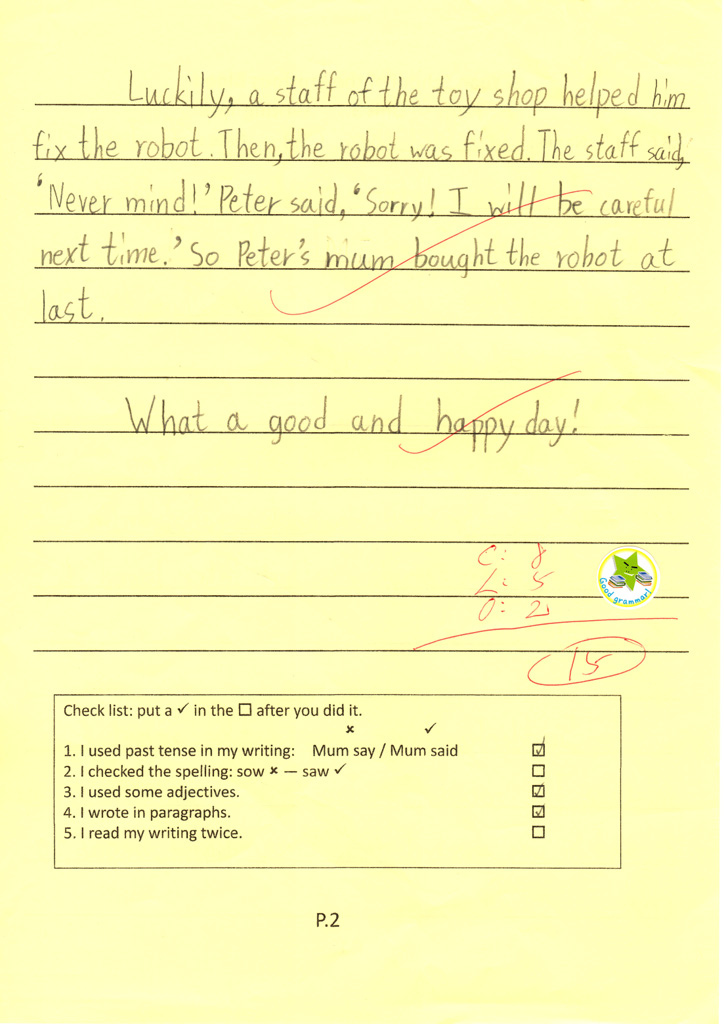 Luckily, a staff of the toy shop helped him
fix the robot. Then, the robot was fixed. The staff said,
'Never mind!' Peter said, 'Sorry! I will be careful
next time.' So Peter's mum bought the robot at
last.
What a good and happy day!
C: 8
L: 5
O: 2
15
Good grammar!
Check list: put a ✓ in the ☐ after you did it.
✗ ✓
1. I used past tense in my writing: Mum say / Mum said ☑
2. I checked the spelling: sow ✗ — saw ✓ ☐
3. I used some adjectives. ☑
4. I wrote in paragraphs. ☑
5. I read my writing twice. ☐
P.2